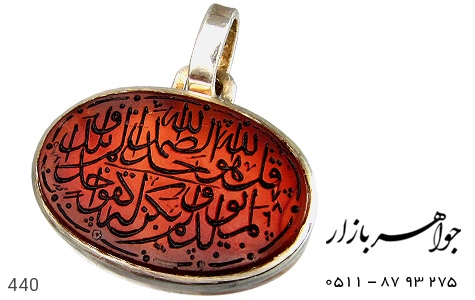 قل هو الله احد الله الصمد لم یلد و
لم یولد و لم یکن له کفوا احد
جواهر بازار
۰۵۱۱ – ۸۷ ۹۳ ۲۷۵
440